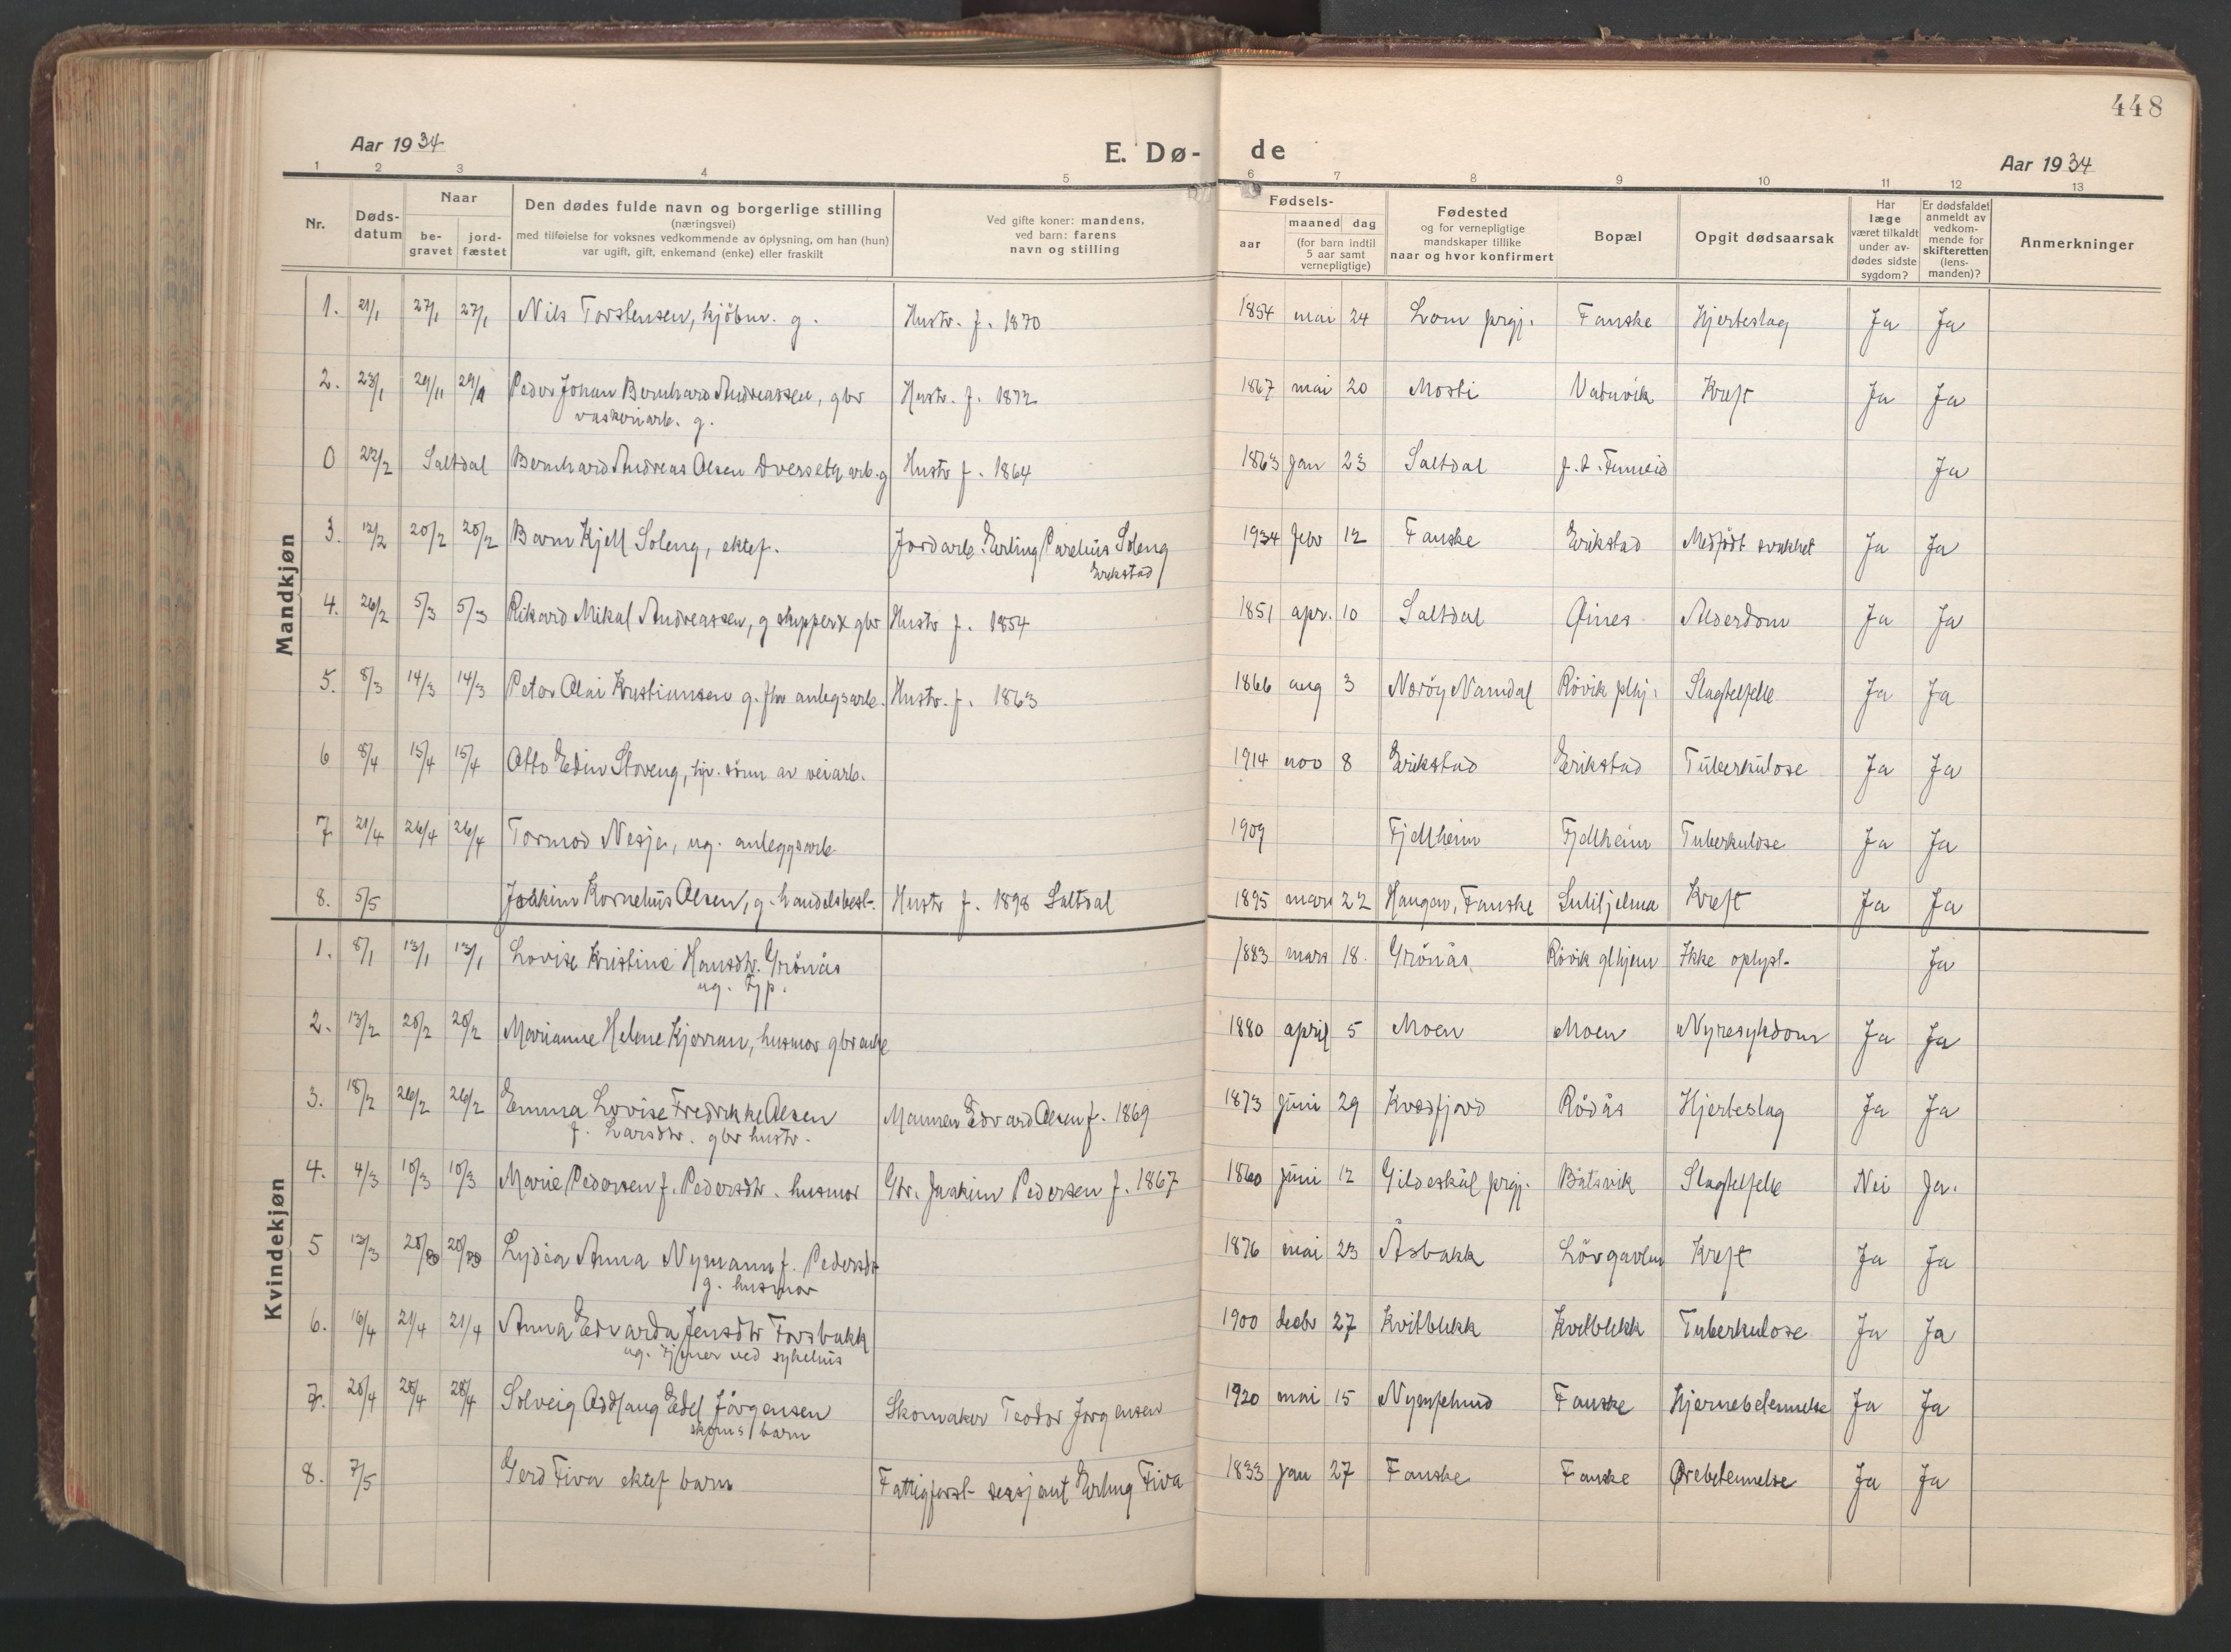 448
Aar 1934
E. Dø-
de
Aar 1934
1 2 3 4 5 6 7 8 9 10 11 12 13
Nr.
Døds-
datum
Naar
be-
gravet
jord-
fæstet
Den dødes fulde navn og borgerlige stilling
(næringsvei)
med tilføielse for voksnes vedkommende av oplysning, om han (hun)
var ugift, gift, enkemand (enke) eller fraskilt
Ved gifte koner: mandens,
ved barn: farens
navn og stilling
Fødsels-
aar
maaned dag
(for barn indtil
5 aar samt
vernepligtige)
Fødested
og for vernepligtige
mandskaper tillike
naar og hvor konfirmert
Bopæl
Opgit dødsaarsak
Har
læge
været tilkaldt
under av-
dødes sidste
sygdom?
Er dødsfaldet
anmeldt av
vedkom-
mende for
skifteretten
(lens-
manden)?
Anmerkninger
Mandkjøn
1. 21/1 27/1 27/1 Nils Torstensen, kjöbm. g. Hustr. f. 1870 1854 mai 24 Lom prgj. Fauske Hjerteslag Ja Ja
2. 23/1 29/1 29/1 Peder Johan Bernhard Andreassen, gbr Hustr. f. 1872 1867 mai 20 Mosti Vatnvik Kreft Ja Ja
vaskeriarb. g.
0 22/2 Saltdal Bernhard Andreas Olsen Dverset arb. g Hustr f. 1864 1863 jan 23 Saltdal f.t. Finneid Ja
3. 12/2 20/2 20/2 Barn Kjell Soleng, ektef. Jordarb. Erling Parelius Soleng 1934 febr 12 Fauske Erikstad Medfødt svakhet Ja Ja
Erikstad
4. 26/2 5/3 5/3 Rikard Mikal Andreassen, g skipper x gbr Hustr f. 1854 1851 apr. 10 Saltdal Øines Alderdom Ja Ja
5. 8/3 14/3 14/3 Peter Olai Kristiansen g. fhv anlegsarb. Hustr. f. 1863 1866 aug 3 Nærøy Namdal Røvik plhj. Slagtilfelle Ja Ja
6 8/4 15/4 15/4 Otto Edin Stoveng, hj. sønn av veiarb. 1914 nov 8 Erikstad Erikstad Tuberkulose Ja Ja
7 21/4 26/4 26/4 Tormod Nesje, ug. anleggsarb. 1909 Fjellheim Fjellheim Tuberkulose Ja Ja
8. 5/5 Joakim Kornelius Olsen, g. handelsbest. Hustr f. 1898 Saltdal 1895 mars 22 Haugen, Fauske Sulitjelma Kreft Ja Ja
Kvindekjøn
1. 8/1 13/1 13/1 Lovise Kristine Hansdtr. Grönås 1883 mars 18. Grönås Røvik glhjem Ikke oplyst. Ja
ug.
2. 13/2 20/2 20/2 Marianne Helene Kjerran, husmor gbr enke 1880 april 5 Moen Moen Nyresykdom Ja Ja
3. 18/2 26/2 26/2 Emma Lovise Fredrikke Olsen Mannen Edvard Olsen f. 1869 1873 juni 29 Kvedfjord Rödås Hjerteslag Ja Ja
f. Larsdtr. gbr hustr.
4. 4/3 10/3 10/3 Marie Pedersen f. Pedersdtr. husmor Gbr. Joakim Pedersen f. 1867 1860 juni 12 Gildeskål prgj. Båtsvik Slagtilfelle Nei Ja.
5 13/3 20/3 20/3 Lydia Anna Nymann f. Pedersdtr 1876 mai 23 Åsbakk Lövgavlen Kreft Ja Ja
g. husmor
6. 16/4 21/4 21/4 Anna Edvarda Jensdtr Forsbakk 1900 decbr 27 Kvitblikk Kvitblikk Tuberkulose Ja Ja
ug. tjener ved sykehus
7. 20/4 28/4 28/4 Solveig Oddlaug Edel Jörgensen Skomaker Teodor Jörgensen 1920 mai 15 Nymplund Fauske Hjernebetennelse Ja Ja
skom.s barn
8. 7/5 Gerd Fiva ektef barn Fattigforst. sersjant Erling Fiva 1833 jan 27 Fauske Fauske Ørebetennelse Ja Ja